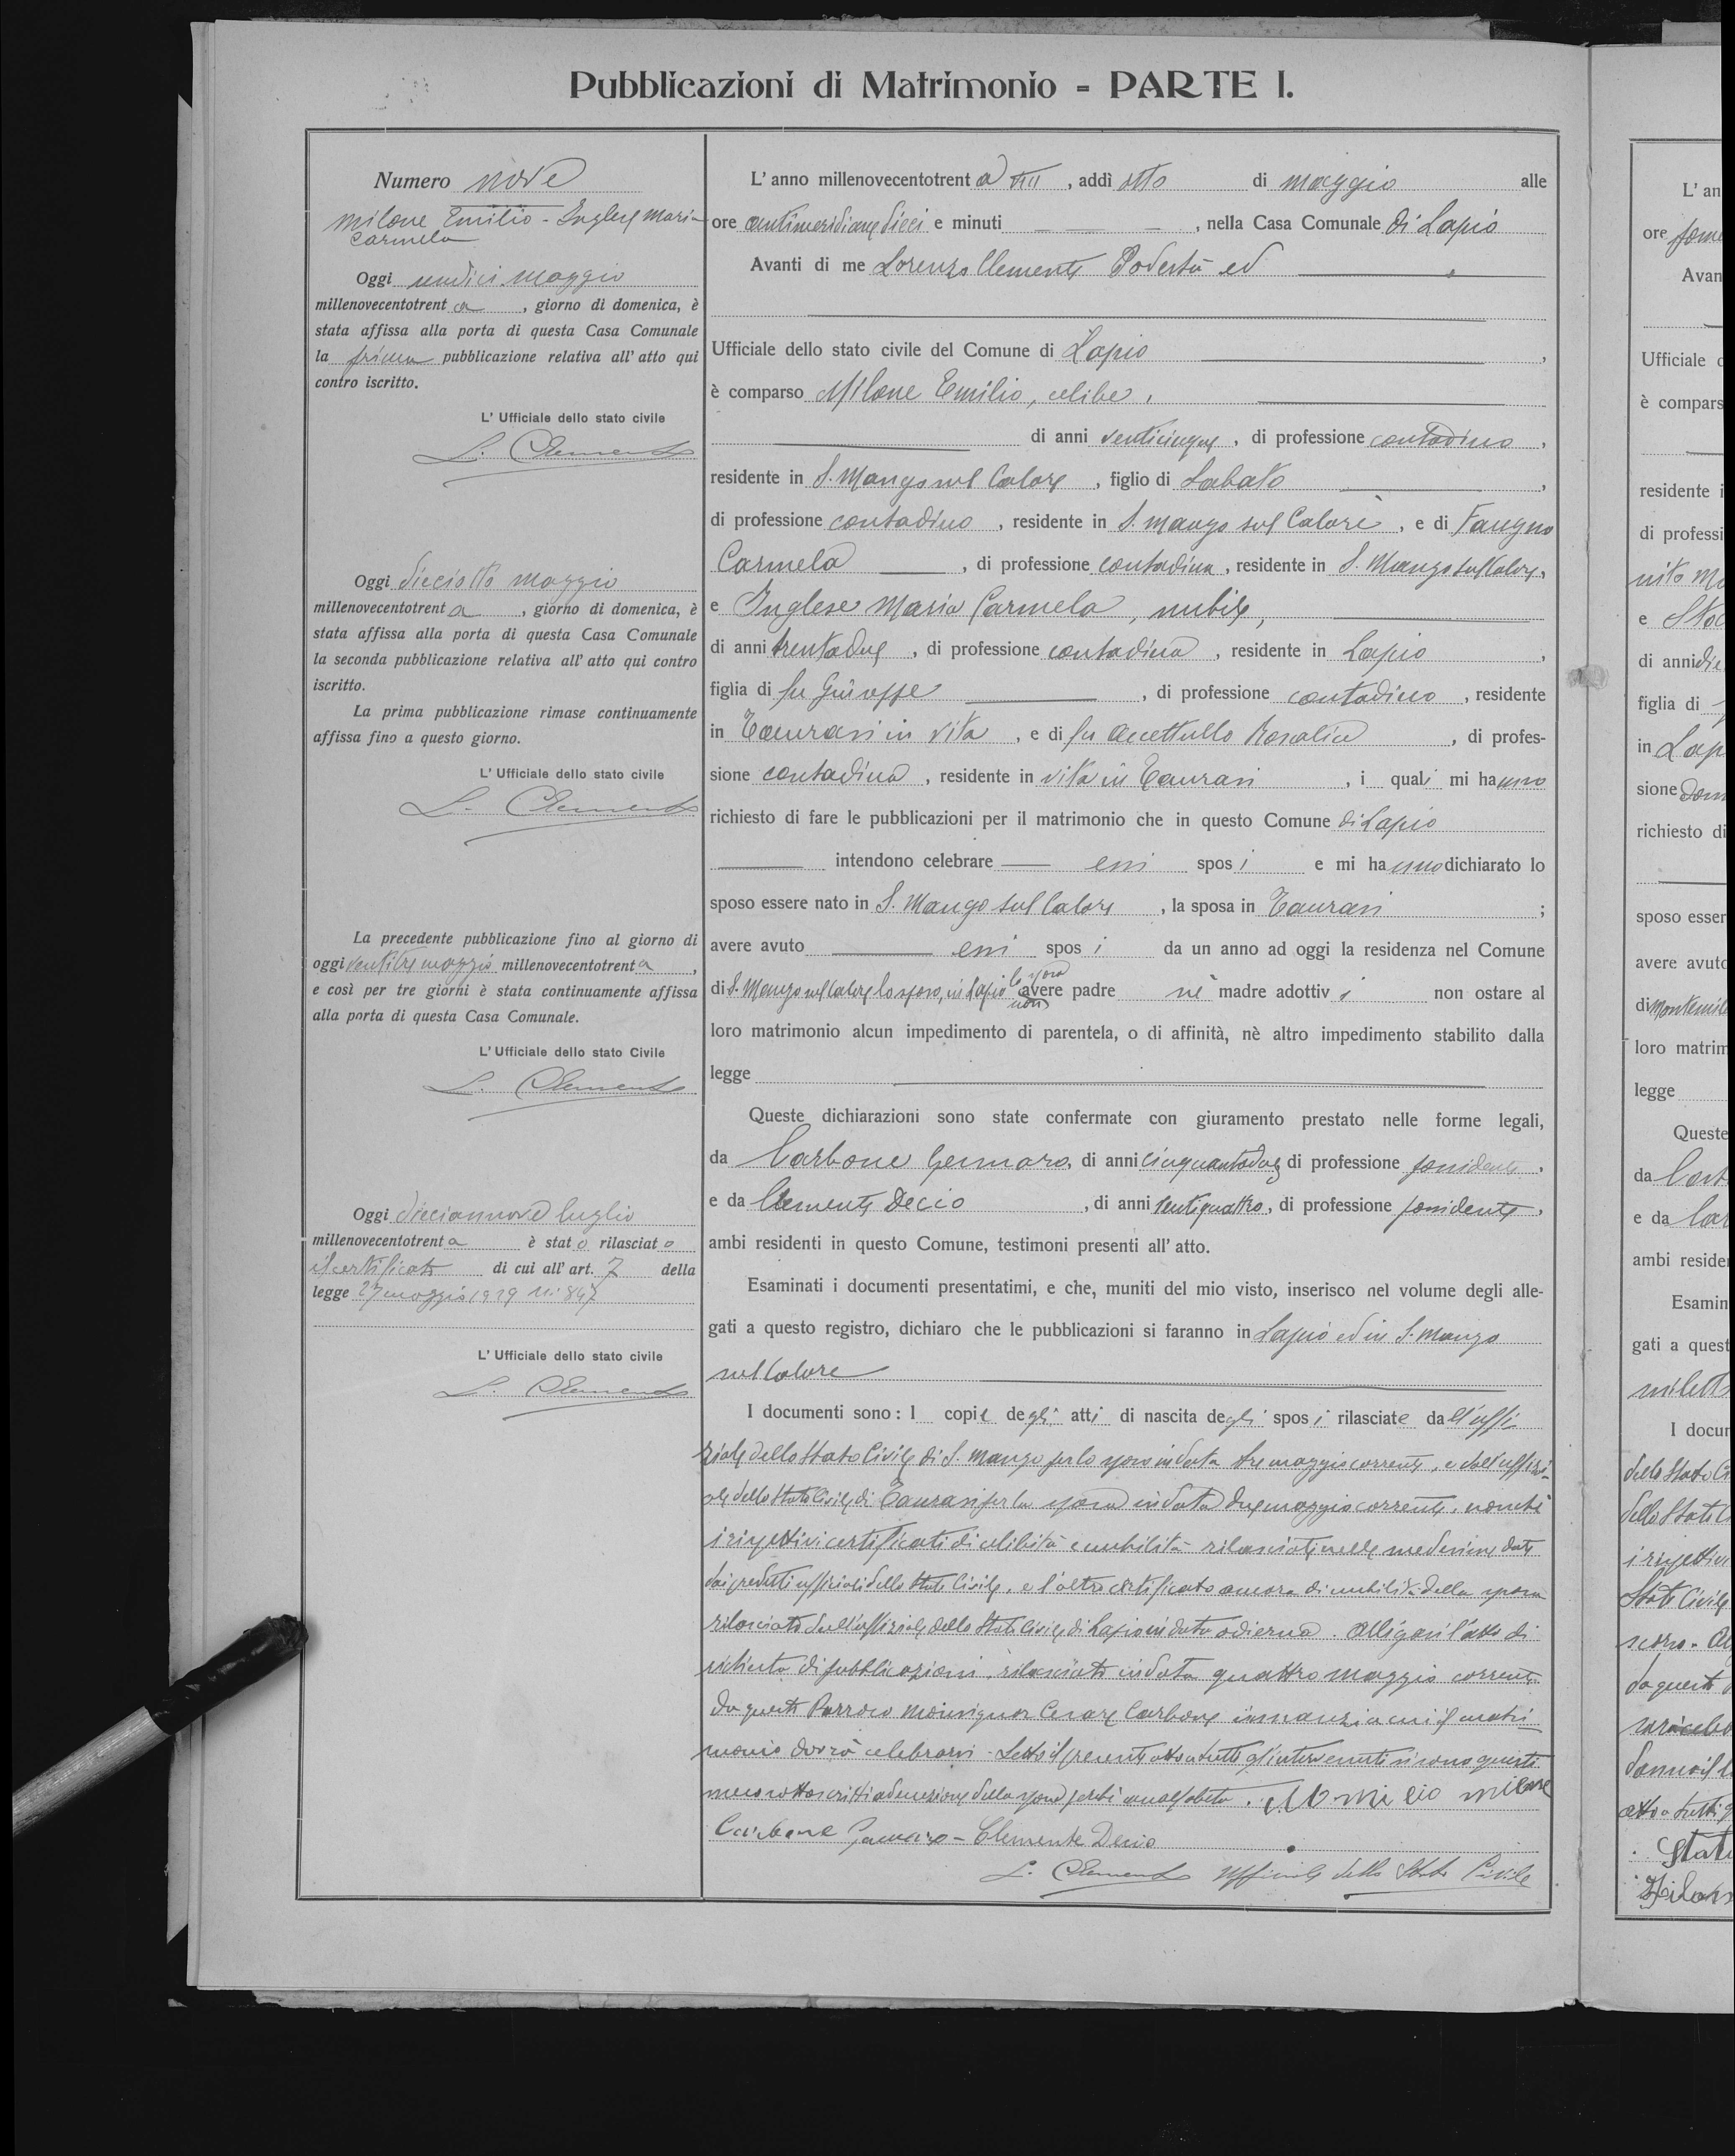 Pubblicazioni di Matrimonio = PARTE I.
Numero nove
Milone Emilio - Inglese Maria
Carmela
Oggi undici maggio
millenovecentotrent a , giorno di domenica, è
stata affissa alla porta di questa Casa Comunale
la prima pubblicazione relativa all' atto qui
contro iscritto.
L' Ufficiale dello stato civile
L. Clemente
Oggi dieciotto maggio
millenovecentotrent a , giorno di domenica, è
stata affissa alla porta di questa Casa Comunale
la seconda pubblicazione relativa all' atto qui contro
iscritto.
La prima pubblicazione rimase continuamente
affissa fino a questo giorno.
L' Ufficiale dello stato civile
L. Clemente
La precedente pubblicazione fino al giorno di
oggi ventitre maggio millenovecentotrent a ,
e così per tre giorni è stata continuamente affissa
alla porta di questa Casa Comunale.
L' Ufficiale dello stato Civile
L. Clemente
Oggi diciannove luglio
millenovecentotrent a è stat o rilasciat o
il certificato di cui all' art. 7 della
legge 27 maggio 1929 n: 847
L' Ufficiale dello stato civile
L. Clemente
L' anno millenovecentotrent a VIII , addì otto di maggio alle
ore antimeridiane dieci e minuti — — — , nella Casa Comunale di Lapio
Avanti di me Lorenzo Clemente Podestà ed
Ufficiale dello stato civile del Comune di Lapio ,
è comparso Milone Emilio, celibe,
di anni venticinque , di professione contadino ,
residente in S. Mango sul Calore , figlio di Sabato ,
di professione contadino , residente in S. Mango sul Calore , e di Fangno
Carmela , di professione contadina , residente in S. Mango sul Calore,
e Inglese Maria Carmela, nubile,
di anni trentadue , di professione contadina , residente in Lapio ,
figlia di fu Giuseppe , di professione contadino , residente
in Taurasi in vita , e di fu Accettullo Rosalia , di profes-
sione contadina , residente in vita in Taurasi , i quali mi hanno
richiesto di fare le pubblicazioni per il matrimonio che in questo Comune di Lapio
intendono celebrare essi spos i e mi ha nno dichiarato lo
sposo essere nato in S. Mango sul Calore , la sposa in Taurasi ;
avere avuto essi spos i da un anno ad oggi la residenza nel Comune
di S. Mango sul Calore lo sposo, in Lapio la sposa non avere padre nè madre adottiv i non ostare al
loro matrimonio alcun impedimento di parentela, o di affinità, nè altro impedimento stabilito dalla
legge
Queste dichiarazioni sono state confermate con giuramento prestato nelle forme legali,
da Carbone Gennaro, di anni cinquantadue di professione possidente ,
e da Clemente Decio , di anni ventiquattro, di professione possidente ,
ambi residenti in questo Comune, testimoni presenti all' atto.
Esaminati i documenti presentatimi, e che, muniti del mio visto, inserisco nel volume degli alle-
gati a questo registro, dichiaro che le pubblicazioni si faranno in Lapio ed in S. Mango
sul Calore
I documenti sono: 1 copie degli atti di nascita degli spos i rilasciate dall'uffi
ziale dello Stato Civile di S. Mango per lo sposo in data tre maggio corrente, e dall'uffizi-
ale dello Stato Civile di Taurasi per la sposa in data due maggio corrente, nonchè
i rispettivi certificati di celibità e nubilità rilasciati nelle medesime date
dai predetti uffiziali dello Stato Civile, e l'altro certificato ancora di nubilità della sposa
rilasciato dall'uffiziale dello Stato Civile di Lapio in data odierna. Alligasi l'atto di
richiesta di pubblicazioni, rilasciata in data quattro maggio corrente
da questo Parroco Monsignor Cesare Carbone innanzi a cui il matri
monio dovrà celebrarsi. Letto il presente atto a tutti gl'intervenuti si sono questi
meco sottoscritti ad eccezione della sposa perchè analfabeta. Milone
Carbone Gennaro - Clemente Decio
L. Clemente Ufficiale dello Stato Civile
L' an
ore
Avan
Ufficiale d
è compars
residente i
di professi
e
di anni
figlia di
in Lap
sione
richiesto di
sposo esser
avere avuto
di
loro matrim
legge
Queste
da
e da Car
ambi reside
Esamin
gati a quest
I docur